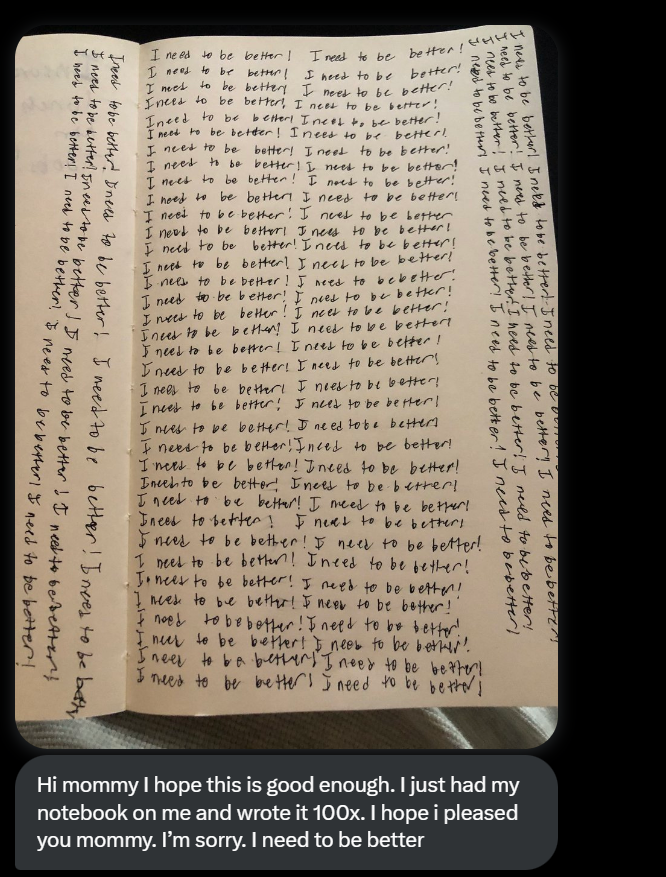 I need to be better! I need to be better! I need to be better! I need to be bett
I need to be better! I need to be better! I need to be better! I need to be better!
I need to be better! I need to be better! I need to be better! I need to be better!
I need to be better! I need to be better!
I need to be better! I need to be better!
I need to be better! I need to be better!
I need to be better! I need to be better!
I need to be better! I need to be better!
I need to be better! I need to be better!
I need to be better! I need to be better!
I need to be better! I need to be better!
I need to be better! I need to be better!
I need to be better! I need to be better!
I need to be better! I need to be better
I need to be better! I need to be better!
I need to be better! I need to be better!
I need to be better! I need to be better!
I need to be better! I need to be better!
I need to be better! I need to be better!
I need to be better! I need to be better!
I need to be better! I need to be better!
I need to be better! I need to be better!
I need to be better! I need to be better!
I need to be better! I need to be better!
I need to be better! I need to be better!
I need to be better! I need to be better!
I need to be better! I need to be better!
I need to be better! I need to be better!
I need to be better! I need to be better!
I need to be better! I need to be better!
I need to better! I need to be better!
I need to be better! I need to be better!
I need to be better! I need to be better!
I need to be better! I need to be better!
I need to be better! I need to be better!
I need to be better! I need to be better!
I need to be better! I need to be better!
I need to be better! I need to be better!
I need to be better! I need to be better!
I need to be better! I need to be better! I need to be
I need to be better! I need to be better! I need to be better! I need to be better!
I need to be better! I need to be better! I need to be better! I need to be better!
I need to be better! I need to be better! I need to be better! I need to be better!
Hi mommy I hope this is good enough. I just had my
notebook on me and wrote it 100x. I hope i pleased
you mommy. I'm sorry. I need to be better